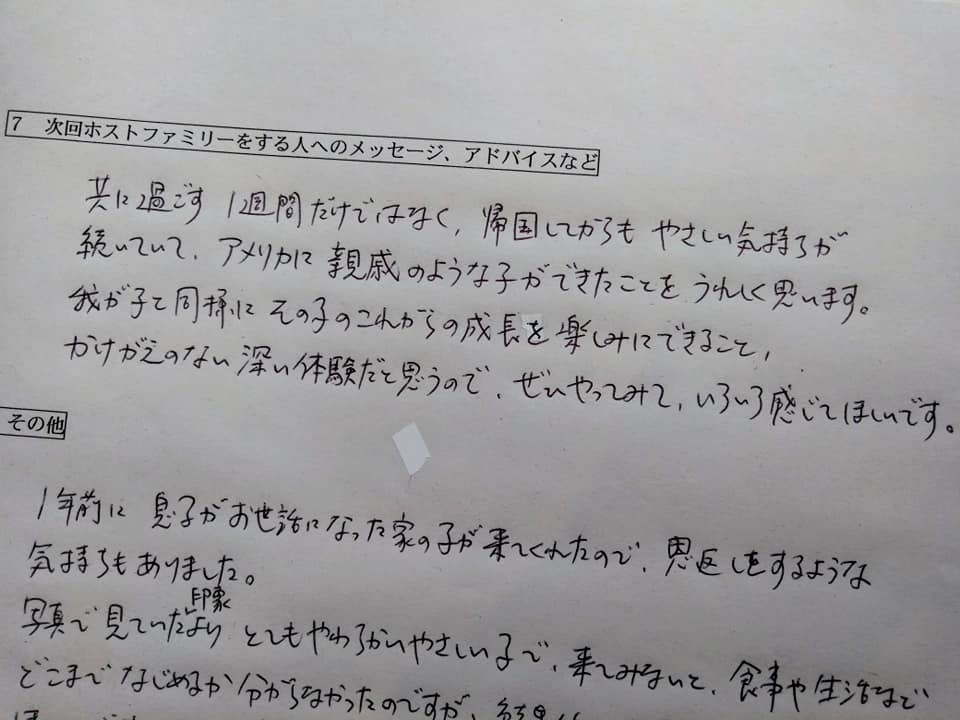 7 次回ホストファミリーをする人へのメッセージ、アドバイスなど
共に過ごす 1週間だけではなく、帰国してからも やさしい気持ちが
続いていて、アメリカに 親戚のような子ができたことを うれしく思います。
我が子と同様に その子のこれからの成長を楽しみにできること、
かけがえのない深い体験だと思うので、ぜひやってみて、いろいろ感じてほしいです。
その他
1年前に 息子がお世話になった家の子が来てくれたので、恩返しをするような
気持ちもありました。
印象
写真で見ていたより とてもやわらかいやさしい子で、来てみないと、食事や生活など
どこまでなじめるか分からなかったのですが、